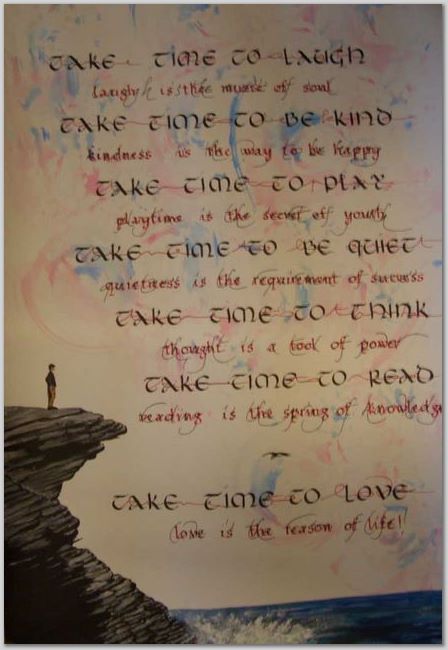 TAKE TIME TO LAUGH
laugh is the music of soul
TAKE TIME TO BE KIND
kindness is the way to be happy
TAKE TIME TO PLAY
playtime is the secret of youth
TAKE TIME TO BE QUIET
quietness is the requirement of success
TAKE TIME TO THINK
thought is a tool of power
TAKE TIME TO READ
reading is the spring of knowledge
TAKE TIME TO LOVE
love is the reason of life!